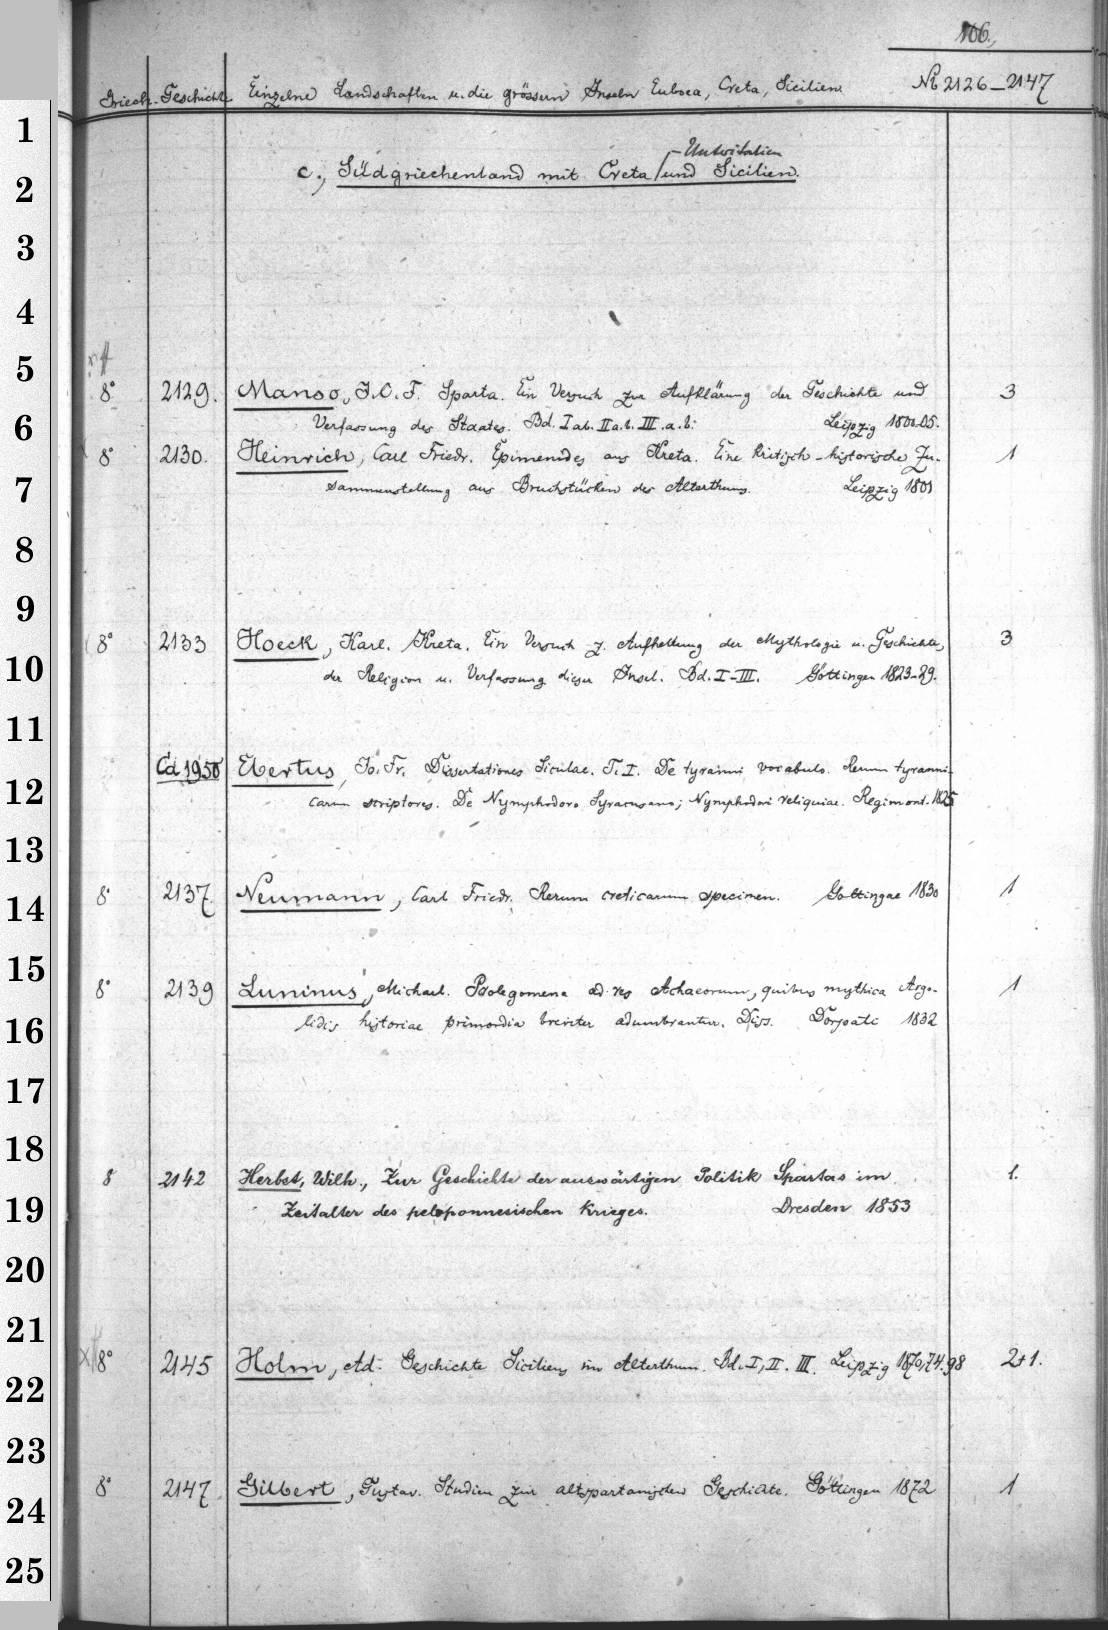 106.
Griech. Geschichte Einzelne Landschaften u. die grössern Inseln Euboea, Creta, Sicilien № 2126–2147
1
Unteritalien
2 c., Südgriechenland mit Creta und Sicilien.
3
4
5
8° 2129. Manso, J. C. F. Sparta. Ein Versuch zur Aufklärung der Geschichte und 3
6 Verfassung des Staates. Bd. I ab. II a. b. III. a. b. Leipzig 1800-05.
8° 2130. Heinrich, Carl Friedr. Epimenides aus Kreta. Eine kritisch-historische Zu- 1
7 sammenstellung aus Bruchstücken des Alterthums. Leipzig 1801
8
9
8° 2133 Hoeck, Karl. Kreta. Ein Versuch z. Aufhellung der Mythologie u. Geschichte, 3
10 der Religion u. Verfassung dieser Insel. Bd. I-III. Göttingen 1823-29.
11
Cd 1950 Ebertus, Jo. Fr. Dissertationes Siculae. T. I. De tyranni vocabulo. Rerum tyranni-
12 carum scriptores. De Nymphodoro Syracusano; Nymphodori reliquiae. Regimont. 1825
13
8° 2137. Neumann, Carl Friedr. Rerum creticarum specimen. Gottingae 1830 1
14
15
8° 2139 Luninus, Michael. Prolegomena ad res Achaeorum, quibus mythica Argo- 1
16 lidis historiae primordia breviter adumbrantur. Diss. Dorpati 1832
17
18
8 2142 Herbst, Wilh., Zur Geschichte der auswärtigen Politik Spartas im 1.
19 Zeitalter des peloponnesischen Krieges. Dresden 1853
20
21
8° 2145 Holm, Ad. Geschichte Siciliens im Alterthum. Bd. I, II. III. Leipzig 1870,74.98 2+1.
22
23
8° 2147 Gilbert, Gustav. Studien zur altspartanischen Geschichte. Göttingen 1872 1
24
25